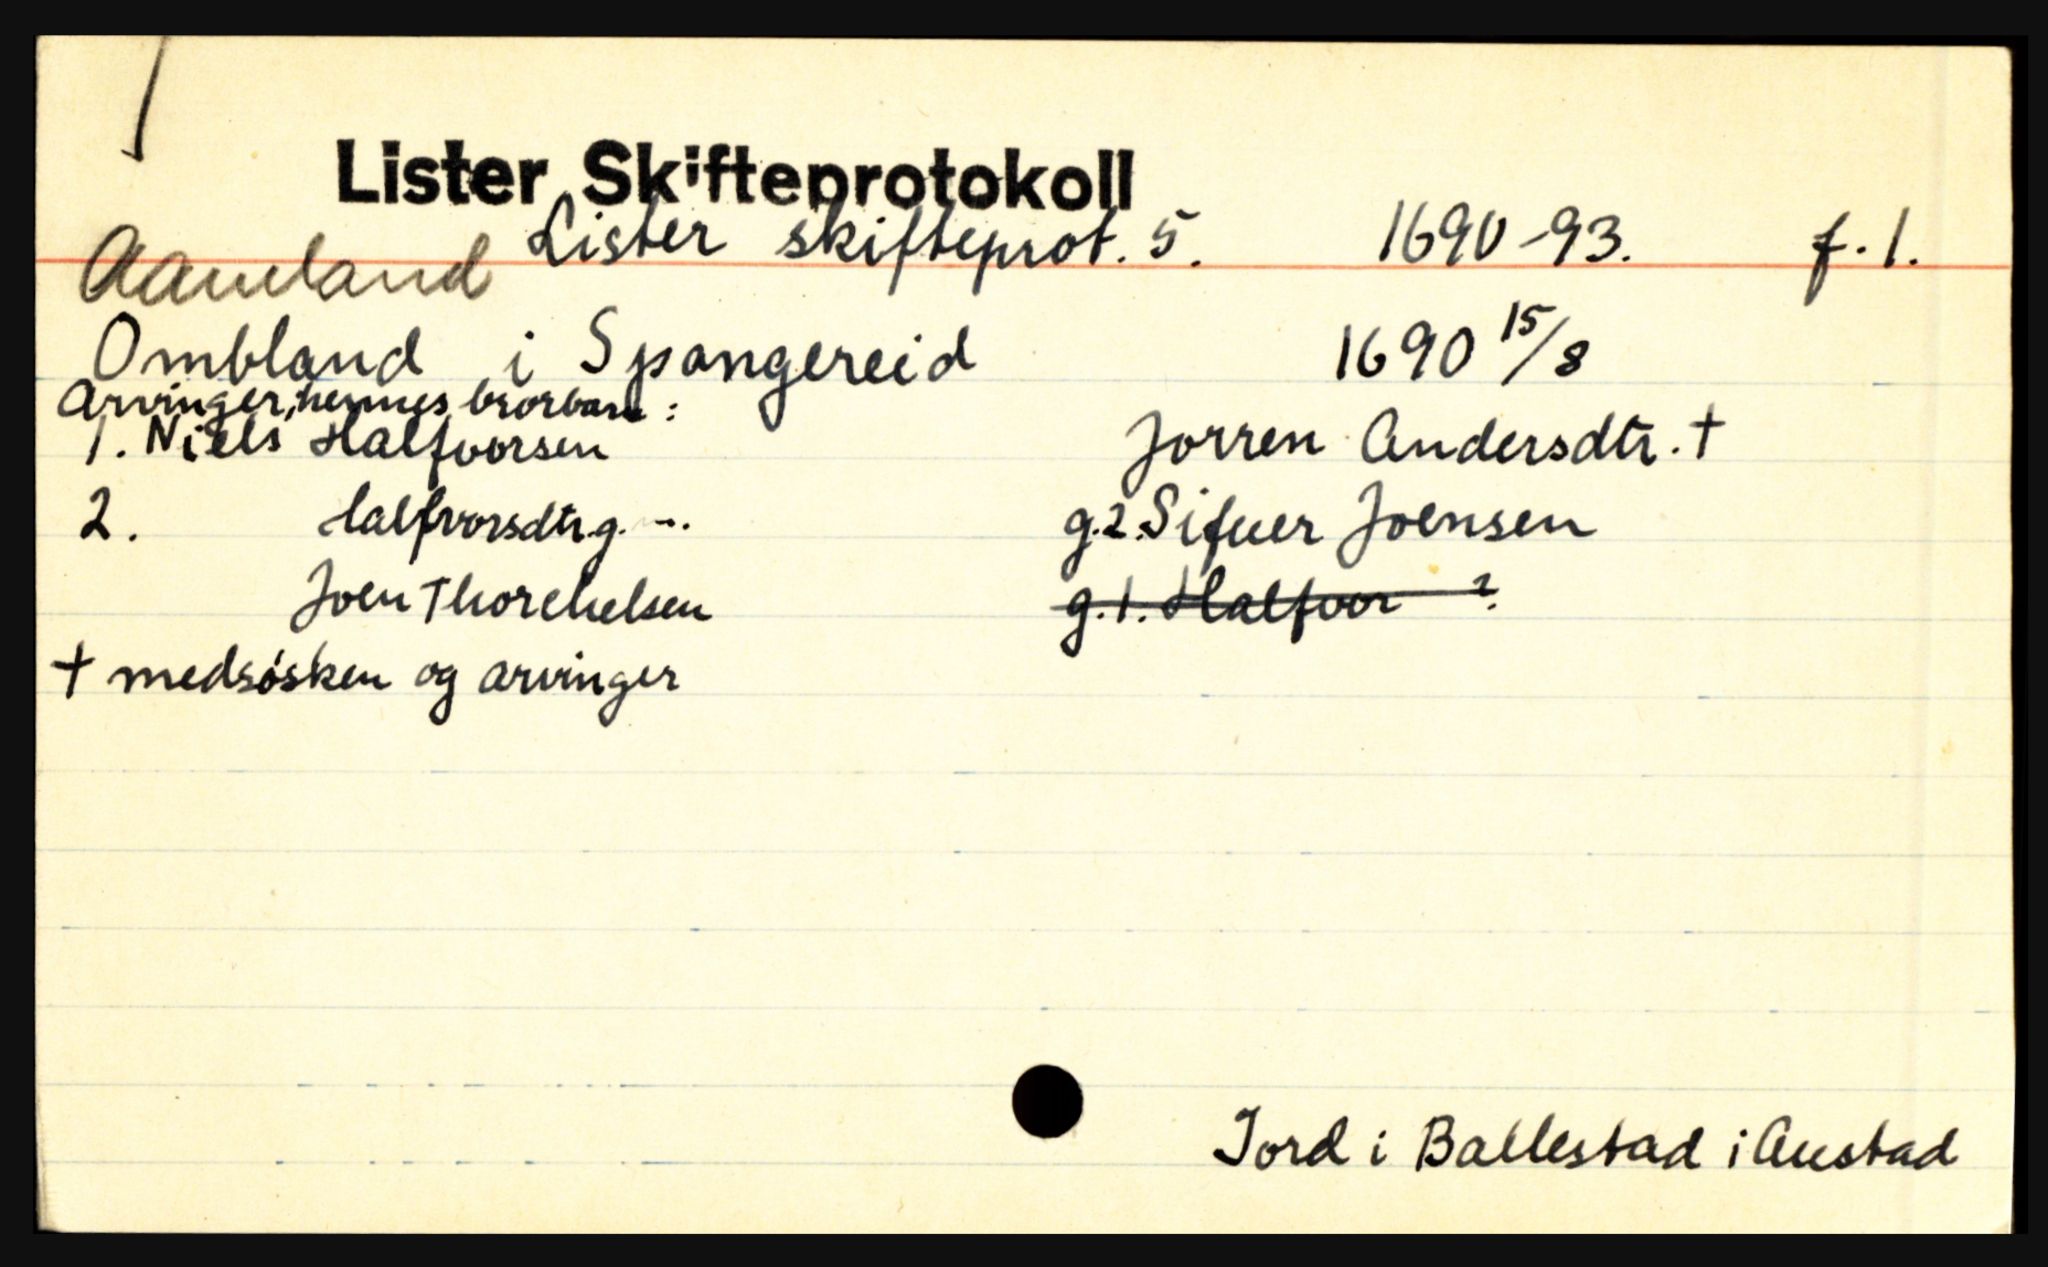 Lister Skifteprotokoll
Lister skifteprot. 5. 1690-93. f. 1.
Aameland
Ombland i Spangereid 1690 15/8
Arvinger, hennes brorbarn:
1. Niels Halfvorsen Jorren Andersdtr. †
2. Halfvorsdtr. g. m. g.2. Sifuer Joensen
Joen Thorchelsen g.1. Halfvor ?
† medsøsken og arvinger
Jord i Ballestad i Austad